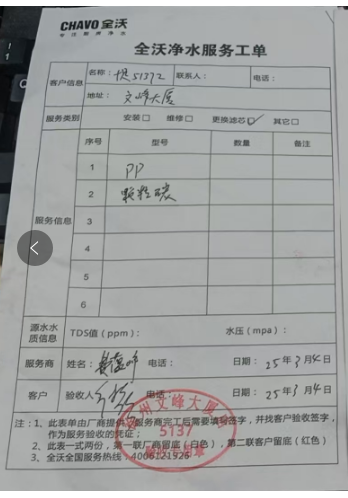 CHAVO 全沃
专注厨房净水
全沃净水服务工单
客户信息 名称： 51372 联系人： 电话：
地址： 文峰大厦
服务类别 安装□ 维修□ 更换滤芯☑ 其它□
服务信息 序号 型号 数量 备注
1 PP
2 颗粒碳
3
4
5
6
源水水质信息 TDS值（ppm）： 水压（mpa）：
服务商 姓名： 电话： 日期： 25年3月4日
客户 验收人： 电话： 日期： 25年3月4日
注：1、此表单由厂商提供，服务商完工后需要填写签字，并找客户验收签字，
作为服务验收的凭证；
2、此表一式两份，第一联厂商留底（白色），第二联客户留底（红色）
3、全沃全国服务热线：4006121926
州文峰大厦
5137
章